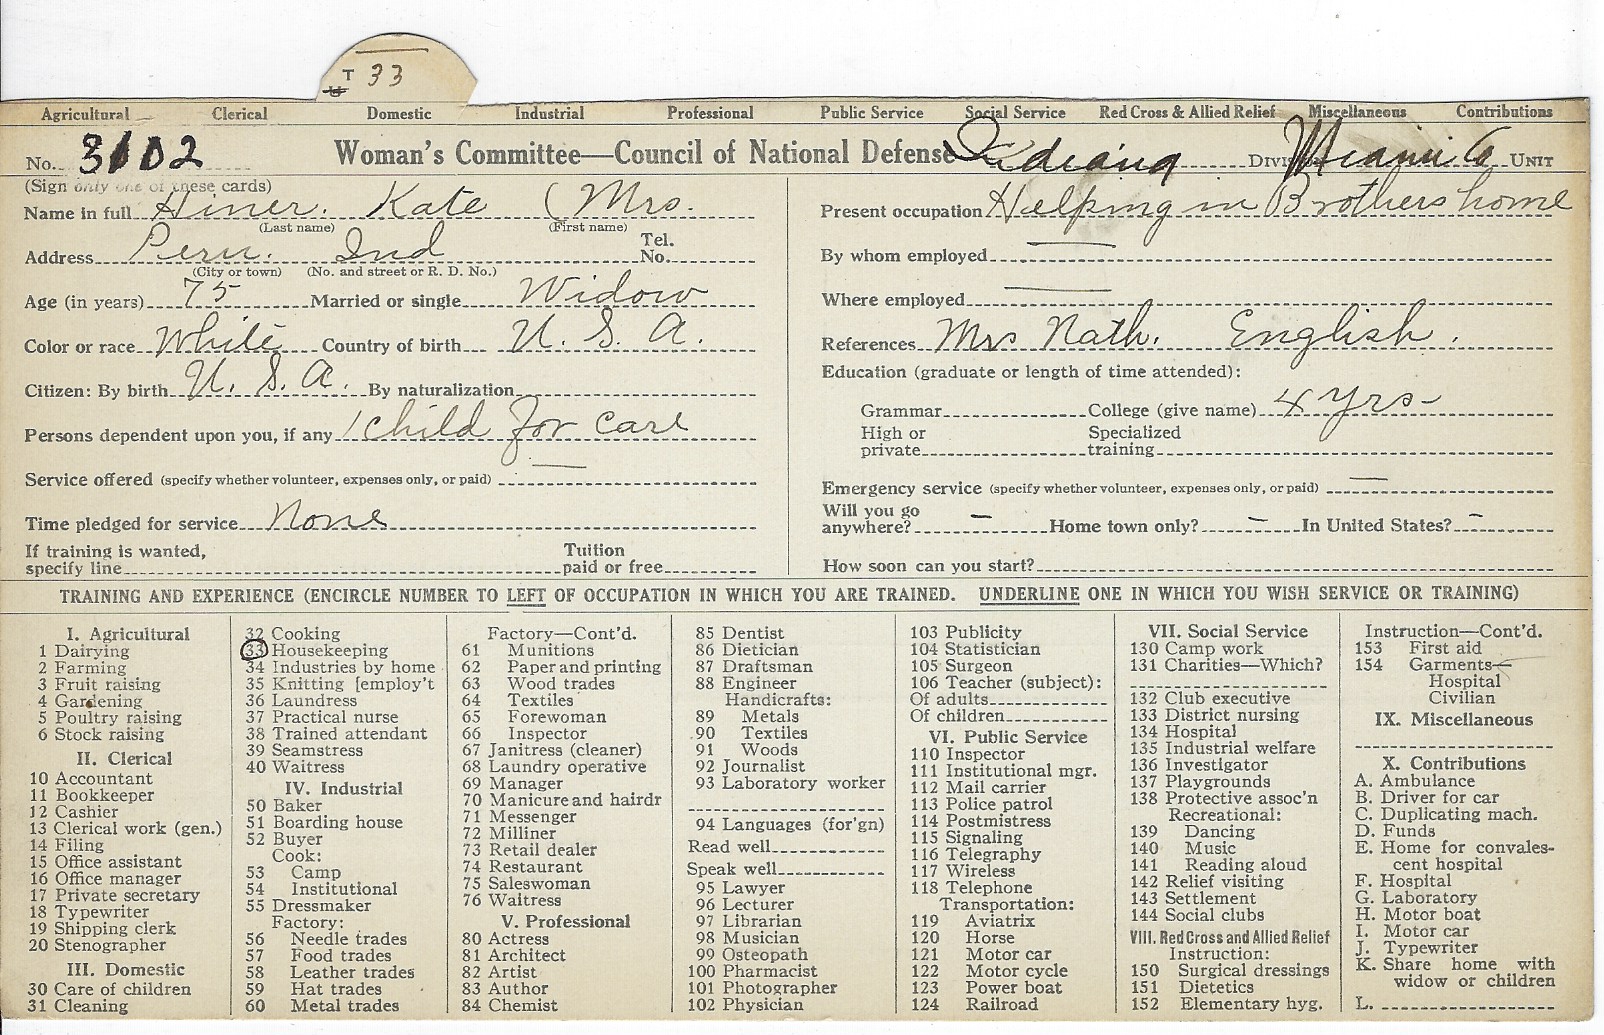 T 33
Agricultural Clerical Domestic Industrial Professional Public Service Social Service Red Cross & Allied Relief Miscellaneous Contributions
No. 3102 Woman's Committee—Council of National Defense Indiana Division Miami Co UNIT
(Sign only one of these cards)
Name in full Hiner. Kate (Mrs.
(Last name) (First name)
Address Peru. Ind Tel. No.
(City or town) (No. and street or R. D. No.)
Age (in years) 75 Married or single Widow
Color or race White Country of birth U. S. A.
Citizen: By birth U. S. A. By naturalization
Persons dependent upon you, if any 1 child for care
Service offered (specify whether volunteer, expenses only, or paid) —
Time pledged for service None
If training is wanted, specify line Tuition paid or free
Present occupation Helping in Brothers home
By whom employed —
Where employed —
References Mrs Nath. English.
Education (graduate or length of time attended):
Grammar College (give name) 4 yrs-
High or private Specialized training
Emergency service (specify whether volunteer, expenses only, or paid) —
Will you go anywhere? — Home town only? — In United States? —
How soon can you start?
TRAINING AND EXPERIENCE (ENCIRCLE NUMBER TO LEFT OF OCCUPATION IN WHICH YOU ARE TRAINED. UNDERLINE ONE IN WHICH YOU WISH SERVICE OR TRAINING)
I. Agricultural
1 Dairying
2 Farming
3 Fruit raising
4 Gardening
5 Poultry raising
6 Stock raising
II. Clerical
10 Accountant
11 Bookkeeper
12 Cashier
13 Clerical work (gen.)
14 Filing
15 Office assistant
16 Office manager
17 Private secretary
18 Typewriter
19 Shipping clerk
20 Stenographer
III. Domestic
30 Care of children
31 Cleaning
32 Cooking
33 Housekeeping
34 Industries by home
35 Knitting [employ't
36 Laundress
37 Practical nurse
38 Trained attendant
39 Seamstress
40 Waitress
IV. Industrial
50 Baker
51 Boarding house
52 Buyer
Cook:
53 Camp
54 Institutional
55 Dressmaker
Factory:
56 Needle trades
57 Food trades
58 Leather trades
59 Hat trades
60 Metal trades
Factory—Cont'd.
61 Munitions
62 Paper and printing
63 Wood trades
64 Textiles
65 Forewoman
66 Inspector
67 Janitress (cleaner)
68 Laundry operative
69 Manager
70 Manicure and hairdr
71 Messenger
72 Milliner
73 Retail dealer
74 Restaurant
75 Saleswoman
76 Waitress
V. Professional
80 Actress
81 Architect
82 Artist
83 Author
84 Chemist
85 Dentist
86 Dietician
87 Draftsman
88 Engineer
Handicrafts:
89 Metals
90 Textiles
91 Woods
92 Journalist
93 Laboratory worker
94 Languages (for'gn)
Read well
Speak well
95 Lawyer
96 Lecturer
97 Librarian
98 Musician
99 Osteopath
100 Pharmacist
101 Photographer
102 Physician
103 Publicity
104 Statistician
105 Surgeon
106 Teacher (subject):
Of adults
Of children
VI. Public Service
110 Inspector
111 Institutional mgr.
112 Mail carrier
113 Police patrol
114 Postmistress
115 Signaling
116 Telegraphy
117 Wireless
118 Telephone
Transportation:
119 Aviatrix
120 Horse
121 Motor car
122 Motor cycle
123 Power boat
124 Railroad
VII. Social Service
130 Camp work
131 Charities—Which?
132 Club executive
133 District nursing
134 Hospital
135 Industrial welfare
136 Investigator
137 Playgrounds
138 Protective assoc'n
Recreational:
139 Dancing
140 Music
141 Reading aloud
142 Relief visiting
143 Settlement
144 Social clubs
VIII. Red Cross and Allied Relief
Instruction:
150 Surgical dressings
151 Dietetics
152 Elementary hyg.
Instruction—Cont'd.
153 First aid
154 Garments—
Hospital
Civilian
IX. Miscellaneous
X. Contributions
A. Ambulance
B. Driver for car
C. Duplicating mach.
D. Funds
E. Home for convales-
cent hospital
F. Hospital
G. Laboratory
H. Motor boat
I. Motor car
J. Typewriter
K. Share home with
widow or children
L.